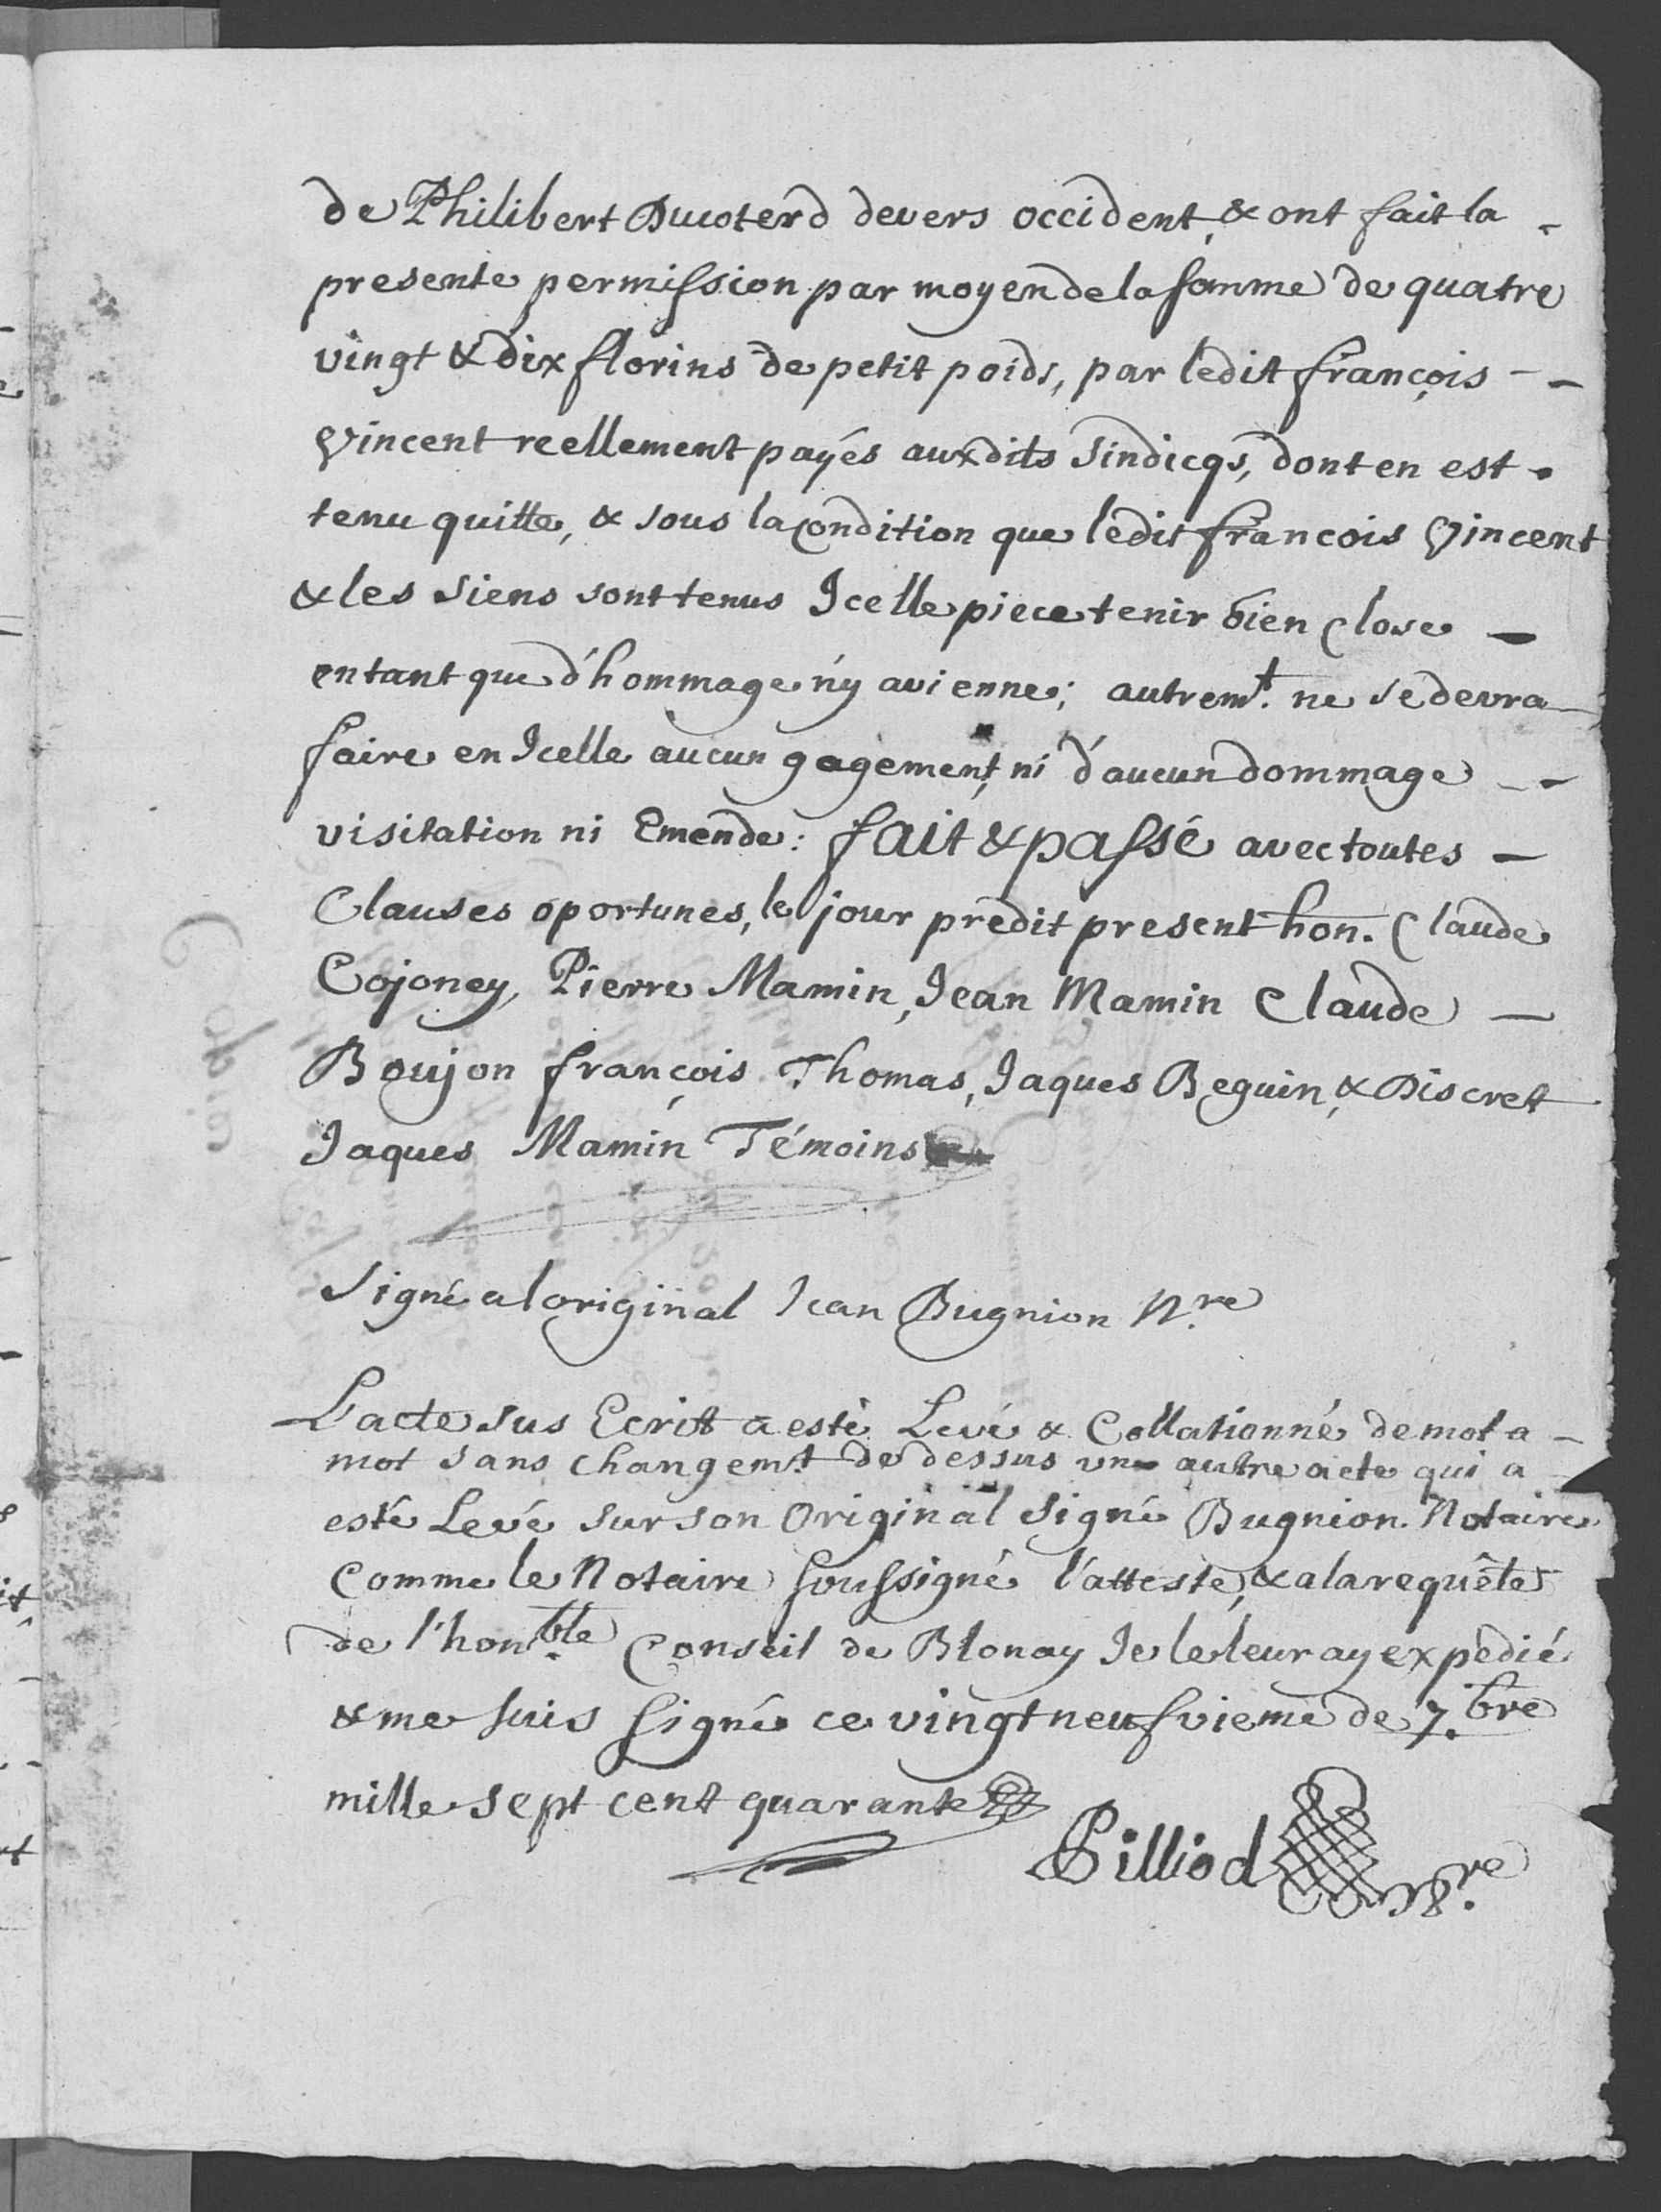 de Philibert Ducoterd devers occident, & ont fait la -
presente permission par moyen de la somme de quatre
vingt & dix florins de petit poids, par ledit françois - -
Vincent reellement payés auxdits Sindicqs, dont en est -
tenu quitte, & sous la condition que ledit francois Vincent
& les siens sont tenus Icelle piece tenir bien close -
entant que d'hommage n'y avienne; autremt. ne se devra
faire en Icelle aucun gagement, ni d'aucun dommage - -
visitation ni Emende: fait & passé avec toutes -
Clauses oportunes, le jour predit present hon. Claude
Cojoney, Pierre Mamin, Jean Mamin Claude -
Boujon françois Thomas, Jaques Beguin, & Discret
Jaques Mamin Témoins
Signé a loriginal Jean Bugnion Nre
L'acte sus Ecrit a esté Levé & Collationné de mot a -
mot sans changemt. de dessus un autre acte qui a
esté Levé sur son Original signé Bugnion Notaire
Comme le Notaire soussigné l'atteste, & a la requête
de l'honble. Conseil de Blonay Je le leur ay expedié
& me suis signé ce vingt neufvieme de 7.bre
mille sept cent quarante
Pilliod Nre.